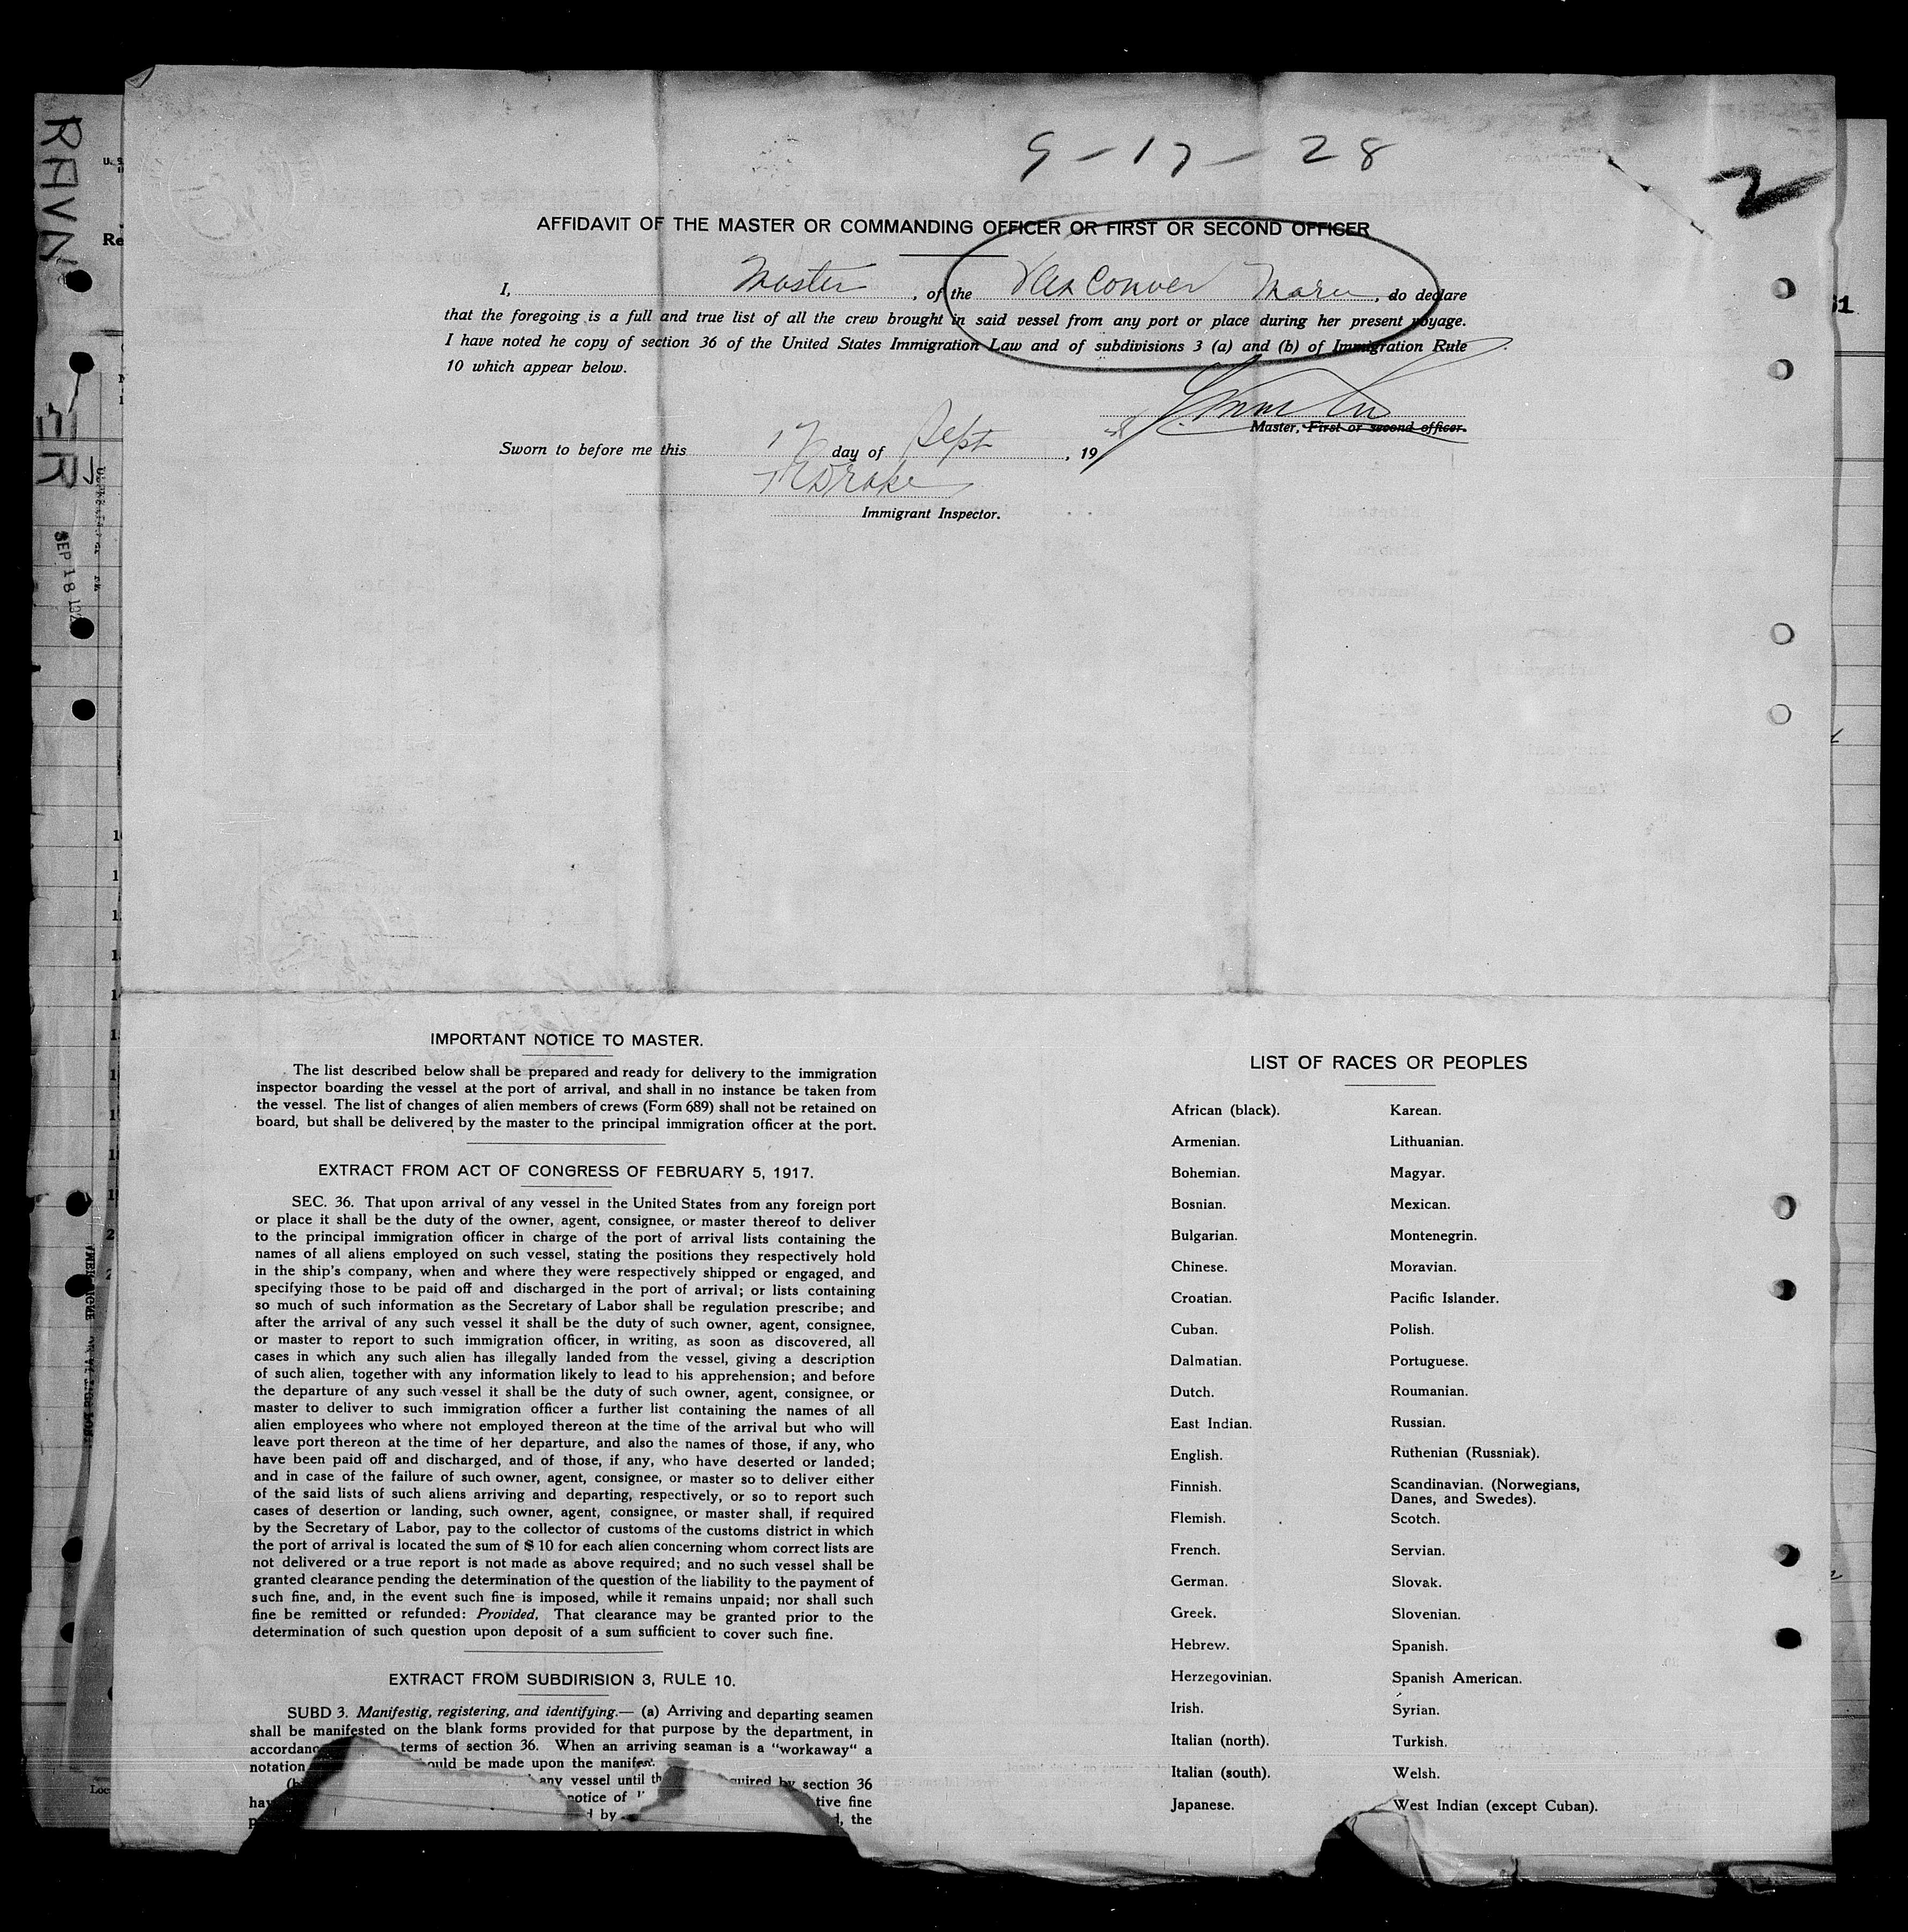 RAVN
9-17-28
2
AFFIDAVIT OF THE MASTER OR COMMANDING OFFICER OR FIRST OR SECOND OFFICER
I, Master, of the Vancouver Maru, do declare
that the foregoing is a full and true list of all the crew brought in said vessel from any port or place during her present voyage.
I have noted he copy of section 36 of the United States Immigration Law and of subdivisions 3 (a) and (b) of Immigration Rule
10 which appear below.
Master, First or second officer.
Sworn to before me this 17 day of Sept, 1928
Drake
Immigrant Inspector.
SEP 18 192
IMPORTANT NOTICE TO MASTER.
The list described below shall be prepared and ready for delivery to the immigration
inspector boarding the vessel at the port of arrival, and shall in no instance be taken from
the vessel. The list of changes of alien members of crews (Form 689) shall not be retained on
board, but shall be delivered by the master to the principal immigration officer at the port.
EXTRACT FROM ACT OF CONGRESS OF FEBRUARY 5, 1917.
SEC. 36. That upon arrival of any vessel in the United States from any foreign port
or place it shall be the duty of the owner, agent, consignee, or master thereof to deliver
to the principal immigration officer in charge of the port of arrival lists containing the
names of all aliens employed on such vessel, stating the positions they respectively hold
in the ship's company, when and where they were respectively shipped or engaged, and
specifying those to be paid off and discharged in the port of arrival; or lists containing
so much of such information as the Secretary of Labor shall be regulation prescribe; and
after the arrival of any such vessel it shall be the duty of such owner, agent, consignee,
or master to report to such immigration officer, in writing, as soon as discovered, all
cases in which any such alien has illegally landed from the vessel, giving a description
of such alien, together with any information likely to lead to his apprehension; and before
the departure of any such vessel it shall be the duty of such owner, agent, consignee, or
master to deliver to such immigration officer a further list containing the names of all
alien employees who where not employed thereon at the time of the arrival but who will
leave port thereon at the time of her departure, and also the names of those, if any, who
have been paid off and discharged, and of those, if any, who have deserted or landed;
and in case of the failure of such owner, agent, consignee, or master so to deliver either
of the said lists of such aliens arriving and departing, respectively, or so to report such
cases of desertion or landing, such owner, agent, consignee, or master shall, if required
by the Secretary of Labor, pay to the collector of customs of the customs district in which
the port of arrival is located the sum of $ 10 for each alien concerning whom correct lists are
not delivered or a true report is not made as above required; and no such vessel shall be
granted clearance pending the determination of the question of the liability to the payment of
such fine, and, in the event such fine is imposed, while it remains unpaid; nor shall such
fine be remitted or refunded: Provided, That clearance may be granted prior to the
determination of such question upon deposit of a sum sufficient to cover such fine.
EXTRACT FROM SUBDIRISION 3, RULE 10.
SUBD 3. Manifestig, registering, and identifying.— (a) Arriving and departing seamen
shall be manifested on the blank forms provided for that purpose by the department, in
accordanc terms of section 36. When an arriving seaman is a "workaway" a
notation ould be made upon the manifest.
any vessel until th quired by section 36
hav notice of tive fine
by , the
LIST OF RACES OR PEOPLES
African (black).
Armenian.
Bohemian.
Bosnian.
Bulgarian.
Chinese.
Croatian.
Cuban.
Dalmatian.
Dutch.
East Indian.
English.
Finnish.
Flemish.
French.
German.
Greek.
Hebrew.
Herzegovinian.
Irish.
Italian (north).
Italian (south).
Japanese.
Karean.
Lithuanian.
Magyar.
Mexican.
Montenegrin.
Moravian.
Pacific Islander.
Polish.
Portuguese.
Roumanian.
Russian.
Ruthenian (Russniak).
Scandinavian. (Norwegians,
Danes, and Swedes).
Scotch.
Servian.
Slovak.
Slovenian.
Spanish.
Spanish American.
Syrian.
Turkish.
Welsh.
West Indian (except Cuban).